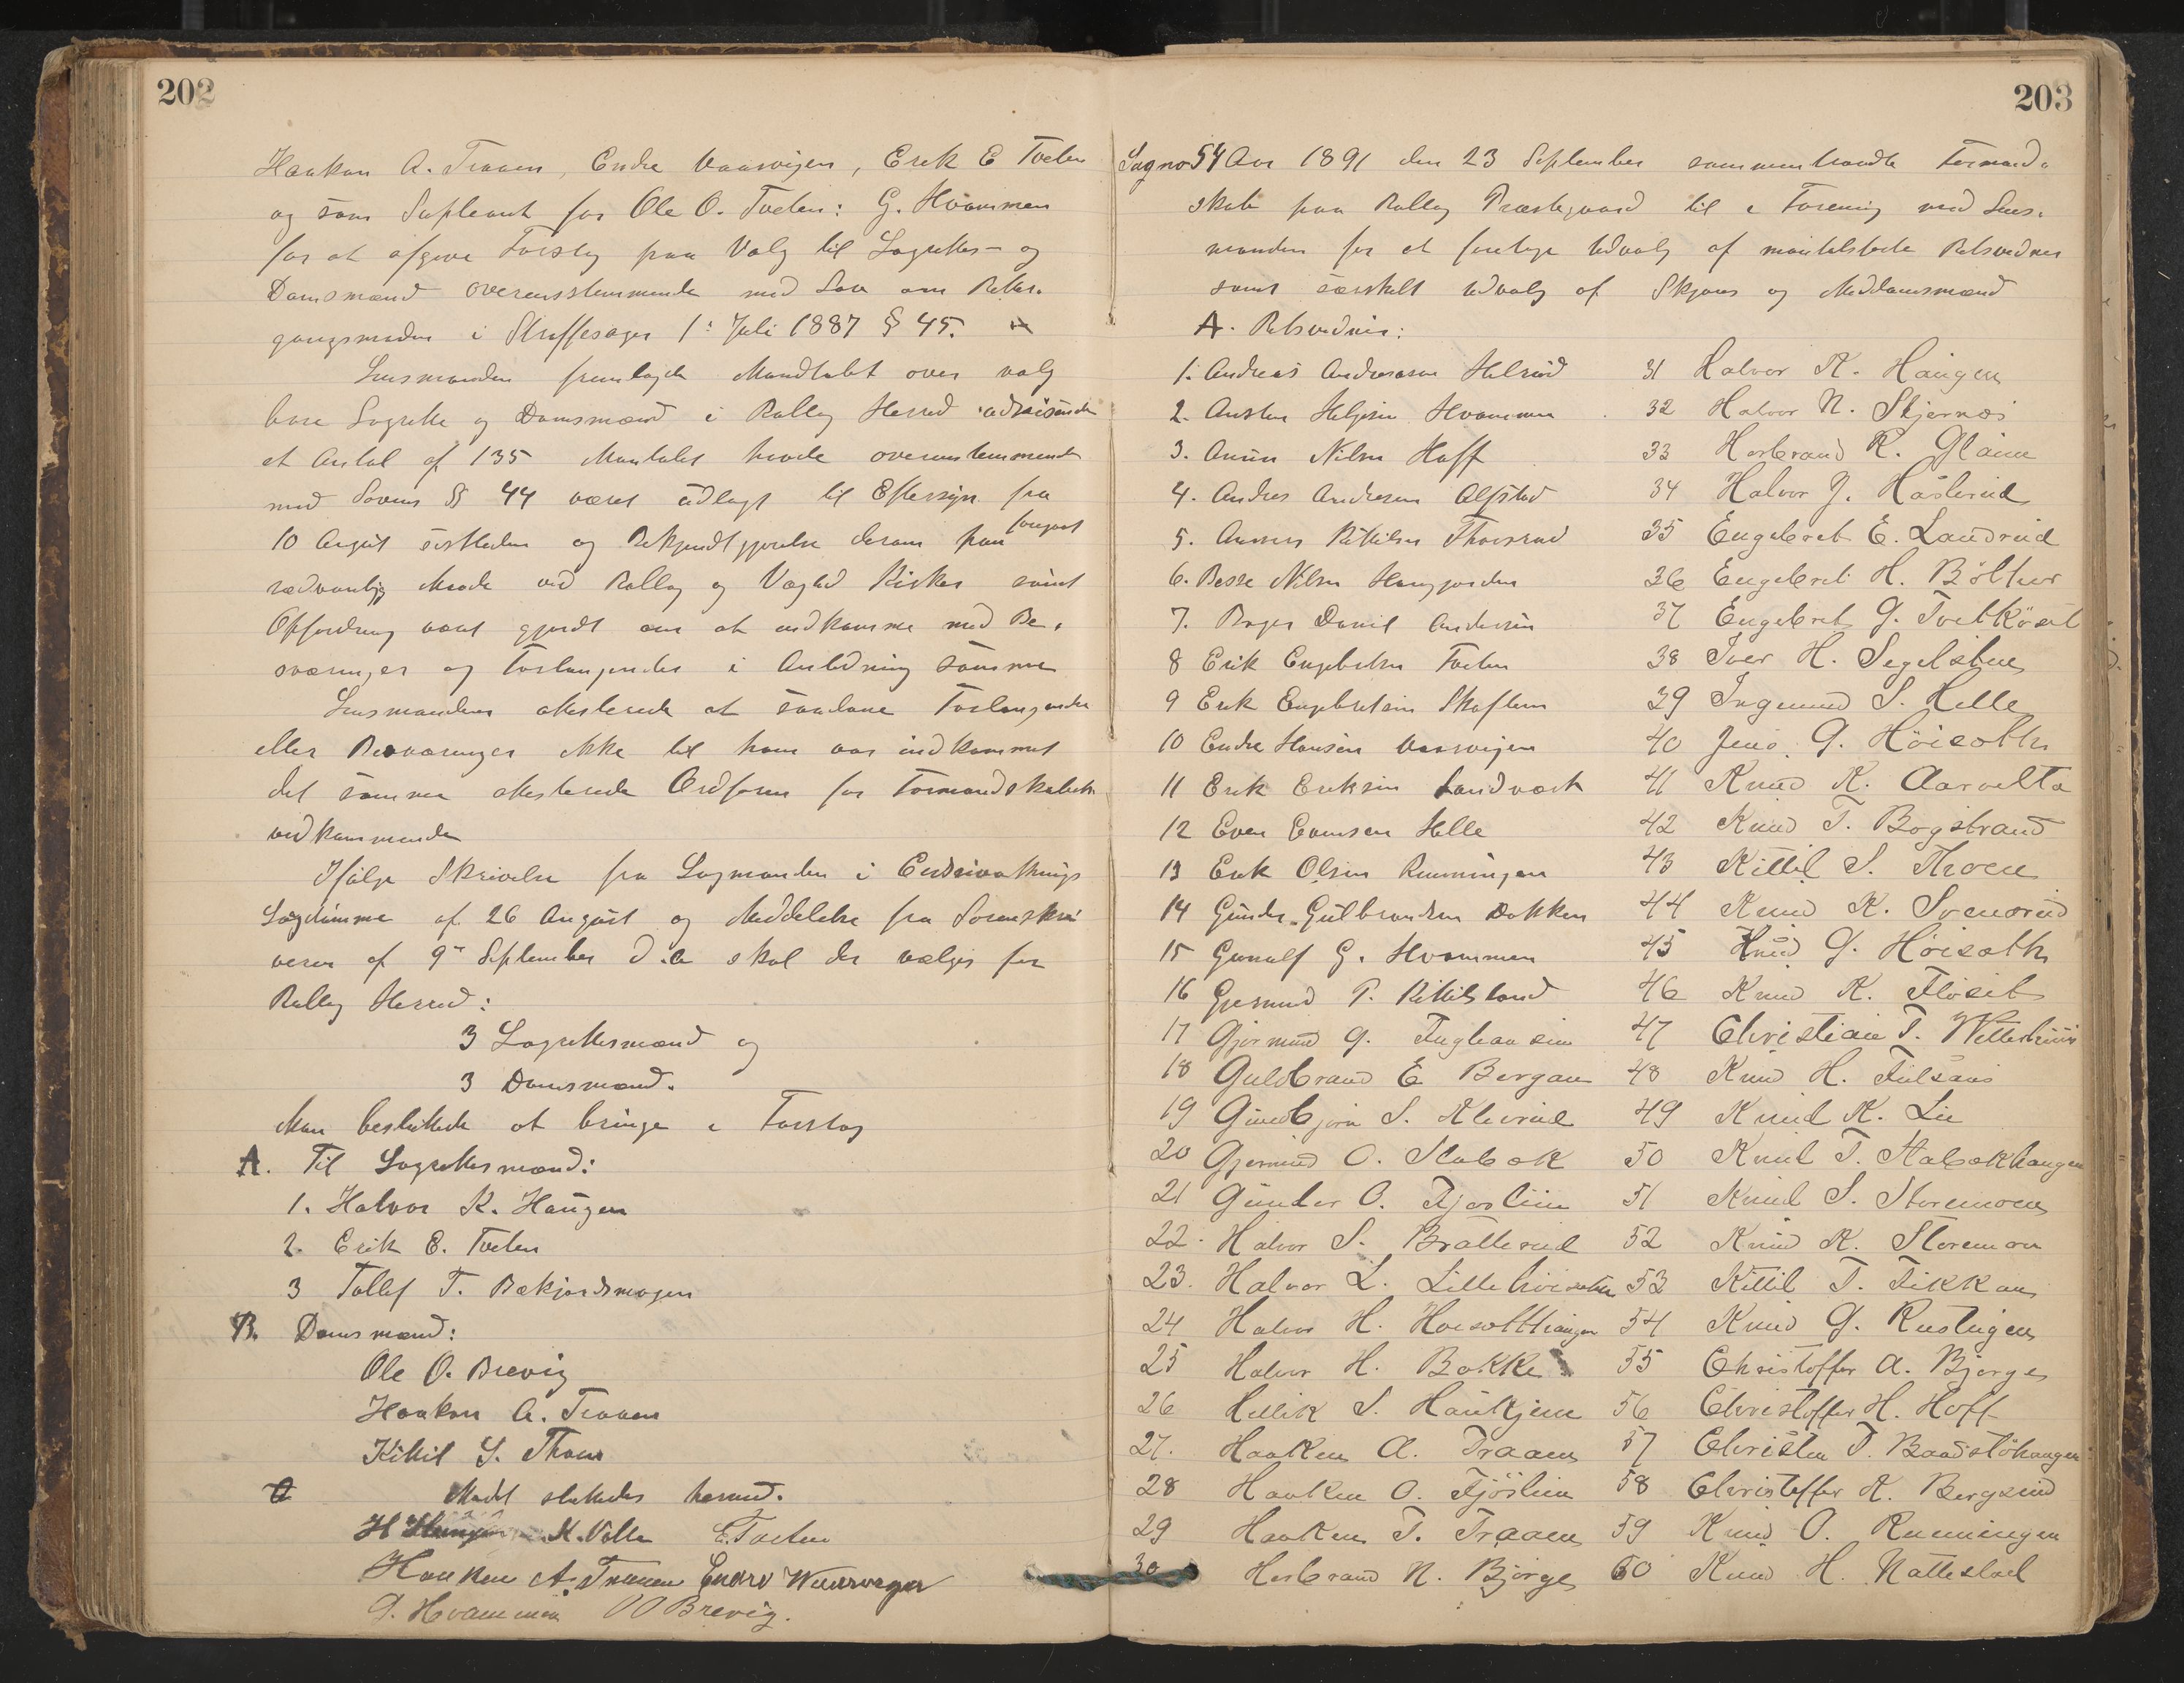 202
Haakon A. Traaen, Endre Vaarvigen, Erik E Tveten
og som Supleant for Ole O. Tveten: G. Hvammen
for at afgive Forslag paa Valg til Lagrettes- og
Domsmænd overensstemmende med Lov om Retter-
gangsmaden i Straffesager 1ste Juli 1887 § 45.
Lensmanden fremlagde Mandtalet over valg
bare Lagrette og Domsmænd i Rollag Herred udvisende
et Antal af 135 Mantalet havde overensstemmende
med Lovens § 44 været udlagt til Eftersyn fra
10 August sidstleden og Bekjendtgjørelse derom paa foregaaet
sædvanlig Maade ved Rollag og Veglid Kirker samt
Opfordring været gjordt om at indkomme med Be-
sværinger og Forlangender i Anledning samme
Lensmanden attesterede at saadane Forlangender
eller Besværinger ikke til ham var indkommet
det samme attesterede Ordføren for Formandskabets
vedkommende
Ifølge Skrivelse fra Lagmanden i Eidsivathings
Lagdømme af 26 August og Meddelelse fra Sorenskri
veren af 9de September d.a skal der vælges for
Rollag Herred:
3 Lagrettesmænd og
3 Domsmænd.
Man besluttede at bringe i Forslag
A. Til Lagrettesmænd:
1. Halvor K. Haugen
2. Erik E. Tveten
3 Tollef T. Bekjordsmogen
B. Domsmænd:
Ole O. Brevig
Haakon A. Traaen
Kittil S. Thoen
Mødet sluttedes hermed.
H Haugen K. Volle E. Tveten
Haaken A. Traaen Endre Waarvigen
G. Hvammen O O Brevig.
203
Sag no 54 Aar 1891 den 23 September sammentraadte Formand-
skabet paa Rollag Præstegaard til i Forening med Lens-
manden for at foretage Udvalg af mantalsførte Retsvidner
samt særskilt Udvalg af Skjøns og Meddomsmænd
A. Retsvidner:
1. Andreas Andreasen Helrud
2. Austen Helgesen Hvammen
3. Anun Nilsen Hoff
4. Andres Andresen Alfstad
5. Anners Kittilsen Thorsrud
6. Besse Nilsen Haugjorden
7. Borger Daniel Andersen
8 Erik Engebretsen Tveten
9 Erik Engebretsen Skaftem
10 Endre Hansen Vaarvigen
11 Erik Eriksen Landverk
12 Even Evensen Helle
13 Erik Olsen Runningen
14 Gunder Gulbrandsen Dokken
15 Gunulf G. Hvammen
16 Gjermund P. Kittilsland
17 Gjermund G. Fuglaasim
18 Guldbrand E Bergan
19 Gunbjørn S. Kleivrud
20 Gjermund O. Stabæk
21 Gunder O. Fjøslien
22. Halvor S. Bratterud
23. Halvor L. Lillehviesæter
24 Halvor H. Høisætthaugen
25 Halvor H. Bakke
26 Hellik S. Haukjem
27. Haaken A. Traaen
28 Haaken O. Fjøslien
29 Haaken T. Traaen
30 Herbrand N. Bjørge
31 Halvor K. Haugen
32 Halvor N. Skjernæs
33 Herbrand K. Glaim
34 Halvor J. Haslerud
35 Engebret E. Landrud
36 Engebret H. Bøltner
37 Engebret G. Tvetkøset
38 Iver H. Segelstuen
39 Ingemund S. Helle
40 Jens G. Høisæth
41 Knud K. Aarvelta
42 Knud T. Bogstrand
43 Kittil S. Thoen
44 Knud K. Svensrud
45 Knud G. Høisæth
46 Knud K. Fløset
47 Christian T. Wetterhuus
48 Knud H. Fulsaas
49 Knud K. Lie
50 Knud T. Stabækhaugen
51 Knud S. Storemoen
52 Knud K. Storemoen
53 Kittil T. Fikkan
54 Knud G. Rusteigen
55 Christoffer A. Bjørge
56 Christoffer H. Hoff
57 Christen T. Baadstøhaugen
58 Christoffer K. Bergsrud
59 Knud O. Runningen
60 Knud H. Nattestad